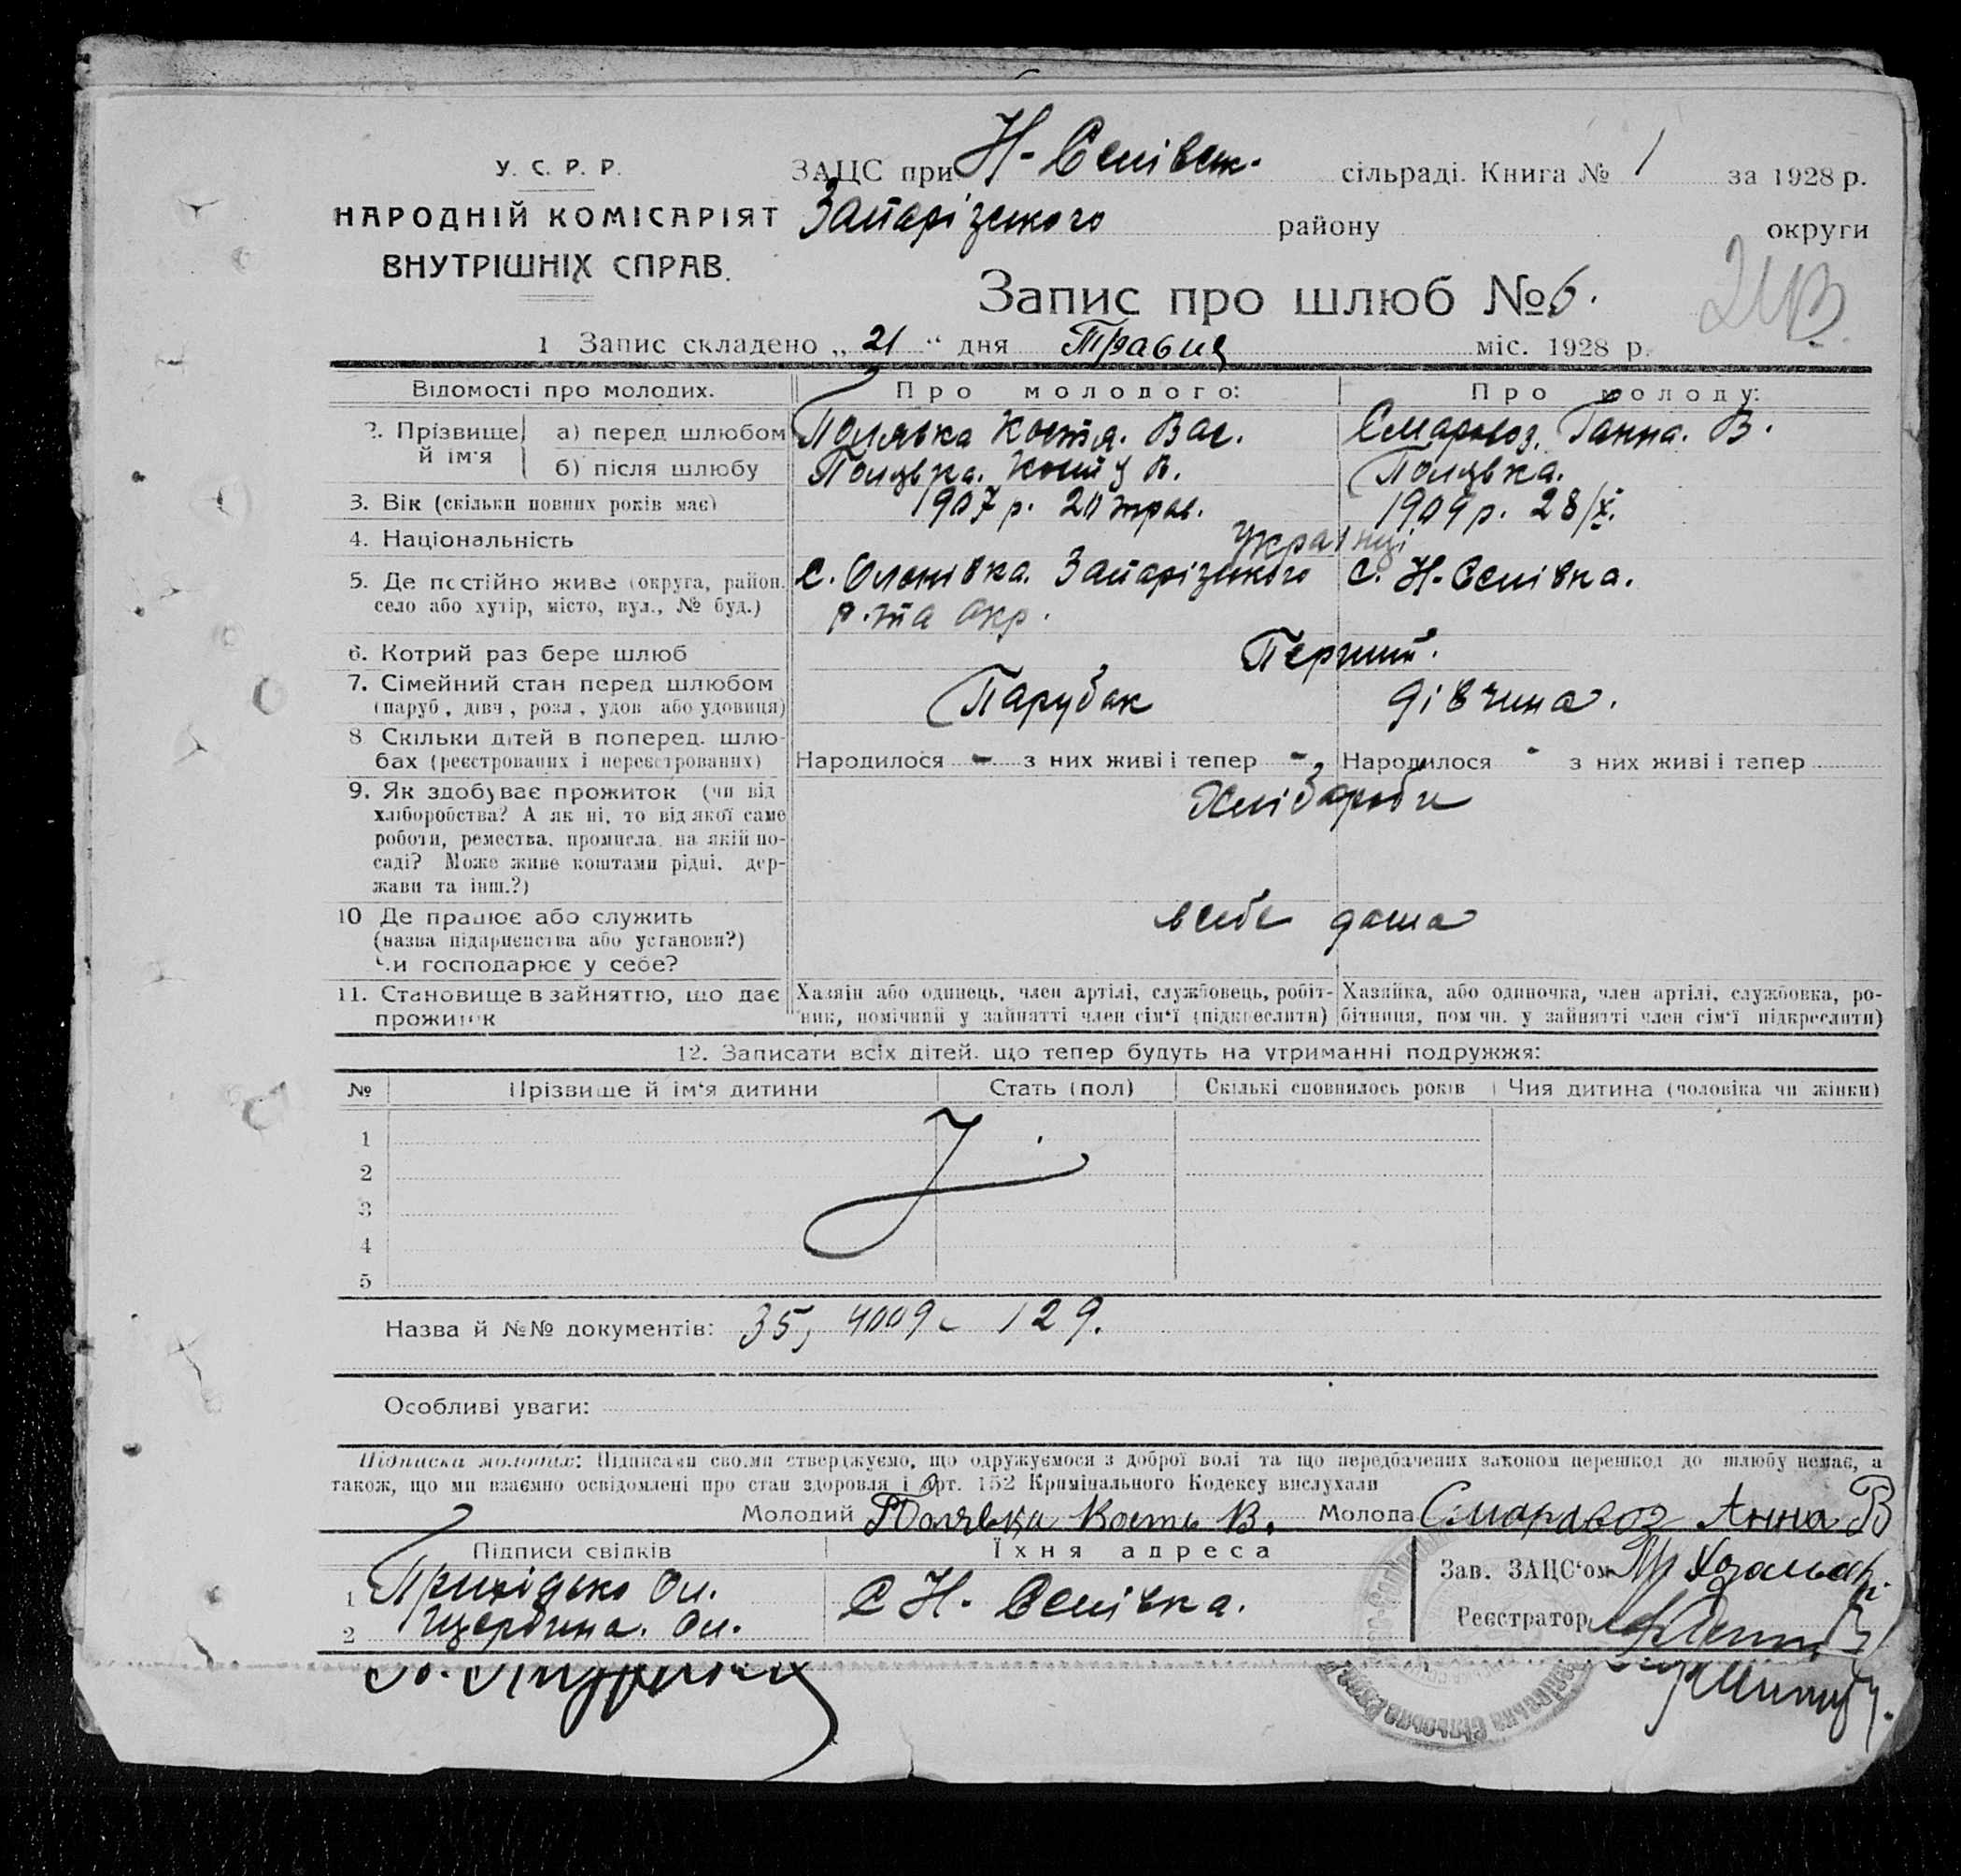 У. С. Р. Р.
НАРОДНІЙ КОМІСАРІЯТ
ВНУТРІШНІХ СПРАВ.
ЗАЦС при Н-Селівськ. сільраді. Книга № 1 за 1928 р.
Запарізького району округи
Запис про шлюб № 6.
1 Запис складено „ 21 “ дня Травня міс. 1928 р.
Відомости про молодих. Про молодого: Про молоду:
2. Прізвище й ім'я а) перед шлюбом Полявка Костя. Вас. Смаровоз. Ганна. В.
б) після шлюбу Полявка. Костя В. Полявка.
3. Вік (скільки повних років має) 1907 р. 20 трав. 1909 р. 28/X.
4. Національність Українці
5. Де постійно живе (округа, район, село або хутір, місто, вул., № буд.) с. Оленівка. Запарізького р. та окр. с. Н-Селівка.
6. Котрий раз бере шлюб Перший.
7. Сімейний стан перед шлюбом (паруб., дівч., розл., удов. або удовиця) Парубак дівчина.
8 Скільки дітей в поперед. шлюбах (реєстрованих і нереєстрованих) Народилося - з них живі і тепер - Народилося - з них живі і тепер
9. Як здобуває прожиток (чи від хліборобства? А як ні, то від якої саме роботи, ремества, промисла, на якій посаді? Може живе коштами рідні, держави та інш.?) Хлібароби
10 Де працює або служить (назва підприємства або установи?) Чи господарює у себе? всебе дома
11. Становище в зайняттю, що дає прожиток Хазяїн або одинець, член артілі, службовець, робітник, помічний у зайнятті член сім'ї (підкреслити) Хазяйка, або одиночка, член артілі, службовка, робітниця, помічн. у зайнятті член сім'ї підкреслити)
12. Записати всіх дітей, що тепер будуть на утриманні подружжя:
№ Прізвище й ім'я дитини Стать (пол) Скількі сповнилось років Чия дитина (чоловіка чи жінки)
1
2
3
4
5
Назва й №№ документів: 35, 4009 129.
Особливі уваги:
Підписка молодих: Підписами своїми стверджуємо, що одружуємося з доброї волі та що передбачених законом перешкод до шлюбу немає, а
також, що ми взаємно освідомлені про стан здоровля і Арт. 152 Кримінального Кодексу вислухали
Молодий Полявка Кость В. Молода Смаравоз Анна В
Підписи свідків Їхня адреса
1 Прихідько Ол. С Н- Селівка. Зав. ЗАЦС'ом
2 Щербина. Ол. Реєстратор